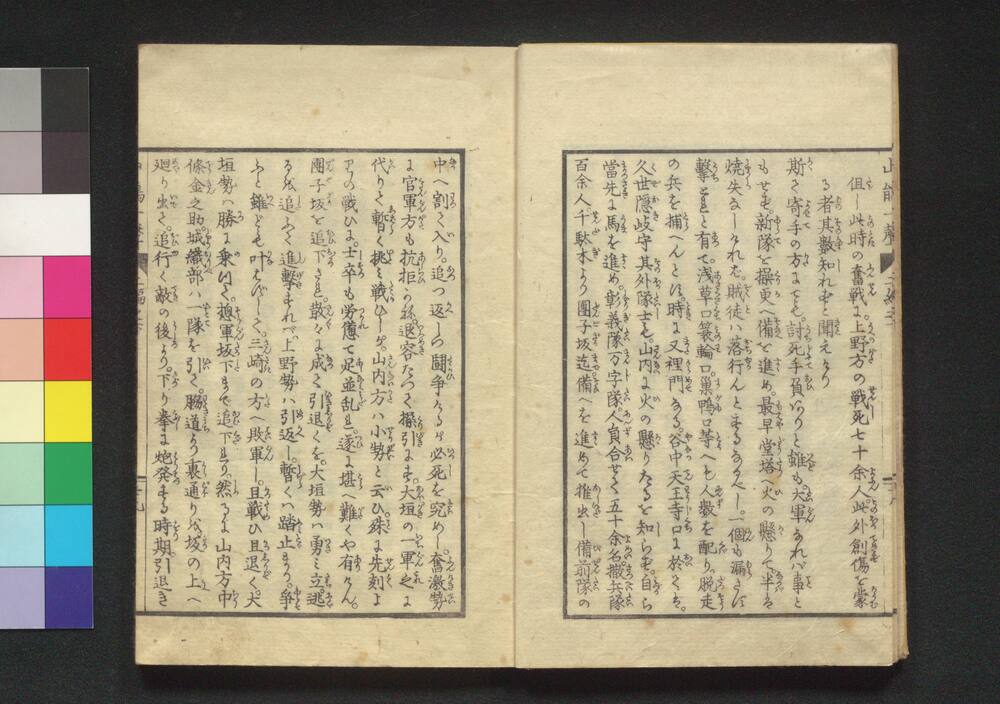 但し此時の奮戦に上野方の戦死七十余人此外創傷を蒙
る者其數知れずと聞えけり
斯て寄手の方にても討死手負ありと雖も大軍なれバ事と
もせず新隊を操更へ備を進め最早堂塔へ火の懸りて半ば
焼失なしければ賊徒ハ落行んとするなるべし一個も漏さず
撃とれと有て浅草口簑輪口巣鴨口等へも人數を配り脱走
の兵を捕へんとす時に又裡門なる谷中天王寺口に於てハ
久世隠岐守其外隊士も山内に火の懸りたるを知らず自ら
當先に馬を進め彰義隊万字隊人負合せて五十余名撒兵隊
百余人千駄木より團子坂迄備へを進めて推出し備前隊の
中へ割て入り追つ返しつ闘争なるが必死を究めし奮激勢
に官軍方も抗拒かね退容たつて操引にす大垣の一軍之に
代りて暫く挑み戦ひしが山内方ハ小勢と云ひ殊に先刻よ
りの戦ひに士卒も労憊て足並乱れ遂に堪へ難くや有けん
團子坂を追下され散々に成て引退くを大垣勢ハ勇み立逃
るを追ふて進撃すれバ上野勢ハ引返し暫くハ踏止まり争
ふと雖ども叶ハずして三崎の方へ敗軍し且戦ひ且退く大
垣勢ハ勝に乗じて總軍坂下まで追下けり然るに山内方中
條金之助城織部ハ一隊を引て勝道より裏通りを坂の上へ
廻り出て追行く敵の後より下り拳に炮発する時期引退き